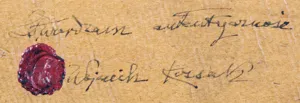 Stwierdzam autentyczność
Wojciech Kossak